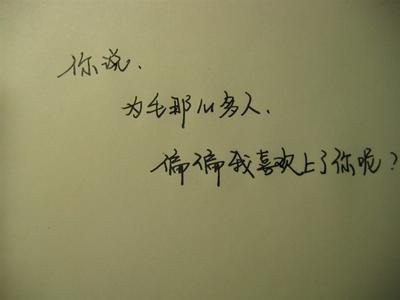 你说.
为毛那么多人.
偏偏我喜欢上了你呢?